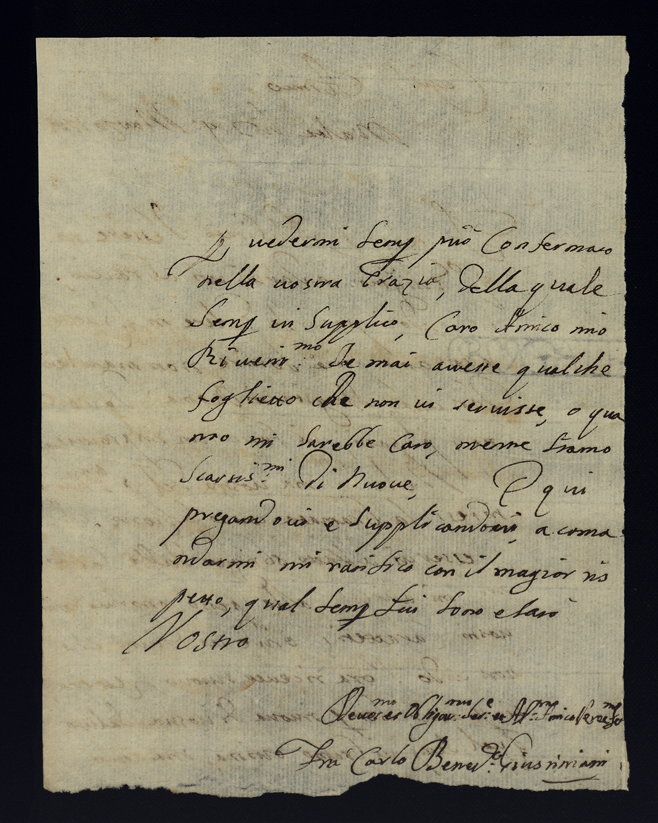 vedermi semp più Confermato
nella vostra Grazia, della quale
Semp vi Supplico, Caro Amico mio
Riverit.mo Se mai aveste qualche
foglietto che non vi servisse, o qua
nto mi Sarebbe Caro, mentre Siamo
Scarsis.mi di Nuove, E qui
pregandovi e Supplicandovi, a coma
ndarmi mi ratifico con il magior ris
petto, qual Semp fui Sono e Sarò
Vostro
Amico
Fra Carlo Bened.to Giustiniani